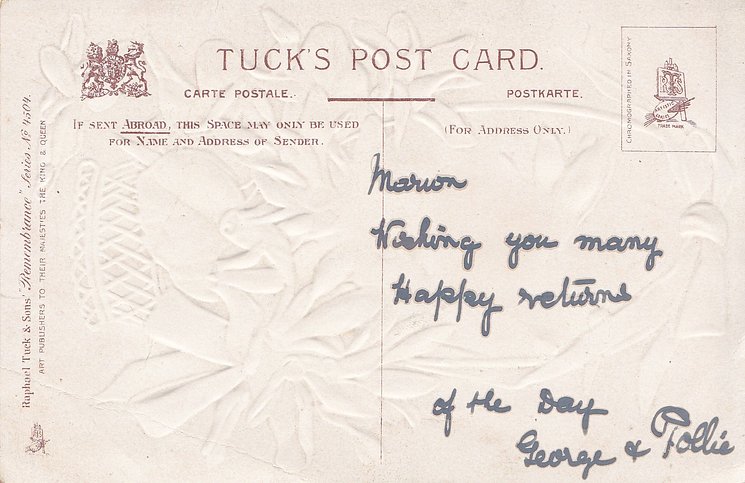 TUCK'S POST CARD.
CARTE POSTALE.
POSTKARTE.
IF SENT ABROAD, THIS SPACE MAY ONLY BE USED
FOR NAME AND ADDRESS OF SENDER.
(FOR ADDRESS ONLY.)
Raphael Tuck & Sons' "Remembrance" Series No 4504.
ART PUBLISHERS TO THEIR MAJESTIES THE KING & QUEEN
CHROMOGRAPHED IN SAXONY
TRADE MARK
Marion
Wishing you many
Happy returns
of the Day
George & Pollie